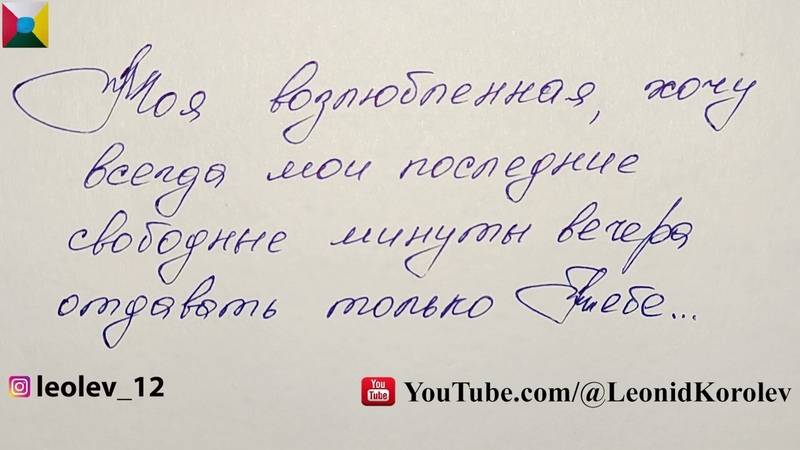 Моя возлюбленная, хочу
всегда мои последние
свободные минуты вечера
отдавать только Тебе...
leolev_12
You
Tube
YouTube.com/@LeonidKorolev